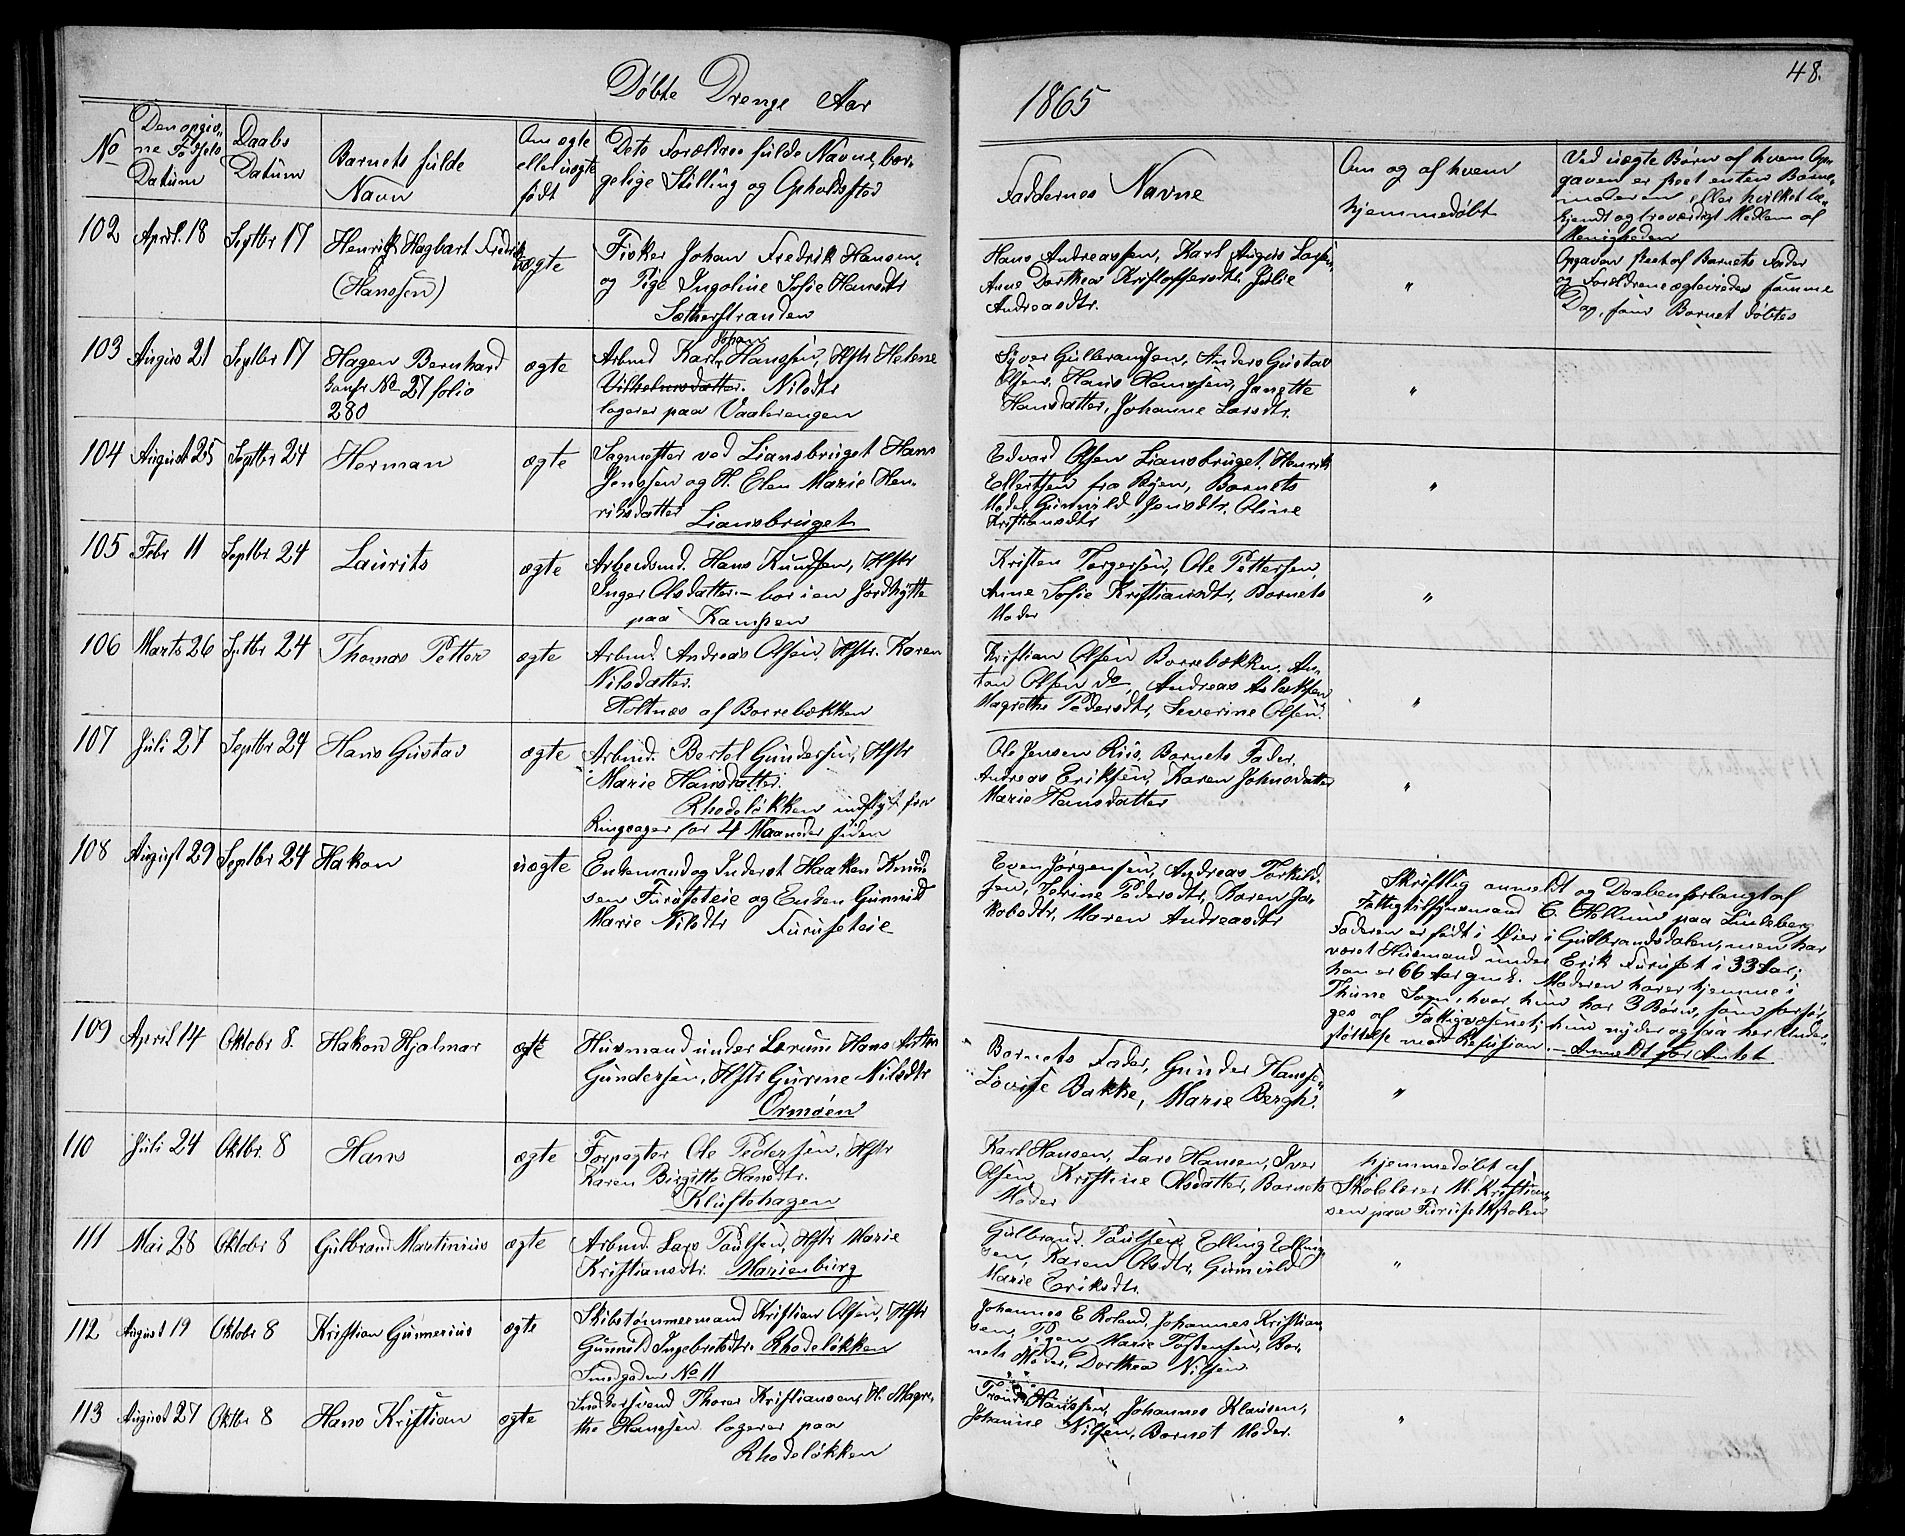 Døbte Drenge Aar
1865
48.
No
Den opgiv-
ne Fødsels
Datum
Daabs
Datum
Barnets fulde
Navn
Om ægte
eller uægte
født
Dets Forældres fulde Navne, bor-
gelige Stilling og Opholdssted
Faddernes Navne
Om og af hvem
hjemmedøbt
Ved uægte Børn af hvem Op-
gaven er skeet enten Barne-
moderen eller hvilket be-
kjendt og troværdigt Medlem af
Menigheden
102 April 18 Septbr 17 Henrik Hagbart Fredrik
(Hanssen)
uægte
Fisker Johan Fredrik Hansen
og Pige Ingoline Sofie Hansdtr
Sætherstranden
Hans Andreassen, Karl August Larsen,
Anne Dorthea Kristoffersdtr. Julie
Andreasdtr.
"
Opgaven skeet af Barnets Fader
og Forældrene ægteviedes samme
Dag, som Barnet døbtes
103 Augus 21 Septbr 17 Hagen Bernhard
Confr No 27 folio
280
ægte
Johan
Arbmd Karl Hanssen, Hstr Helene
Vilhelmsdatter. Nilsdtr
logerer paa Vaalerengen
Syver Gulbrandsen, Anders Gustav
Olsen, Hans Hanssen, Janette
Hansdatter, Johanne Larsdtr.
"
104 August 25 Septbr 24 Herman
ægte
Sagmester ved Liansbruget Hans
Jenssen og H. Elen Marie Hen-
riksdatter Liansbruget
Edvard Olsen Liansbruget, Henrik
Ellertsen fra Byen, Barnets
Moder, Gunild Jensdtr. Oline
Kristiansdtr
"
105 Febr 11 Septbr 24 Laurits
ægte
Arbeidsmd. Hans Knudsen, Hstr
Inger Olsdatter – bor i en Jordhytte
paa Kampen
Kristen Torgersen, Ole Pettersen,
Anne Sofie Kristiansdtr, Barnets
Moder
"
106 Marts 26 Sptbr 24 Thomas Petter
ægte
Arbmd. Andreas Olsen, Hstr. Karen
Nilsdatter.
Holtnæs af Borrebækken
Kristian Olsen Borrebækken. An-
ton Olsen do, Andreas Aslaksen
Magrethe Pedersdtr, Severine Olsen.
"
107 Juli 27 Septbr 24 Hans Gustav
ægte
Arbmd. Bertol Gundersen, Hstr
Marie Hansdatter.
Rhodeløkken indflyt fra
Ringsager for 4 Maaneder siden
Ole Jensen Riis, Barnets Fader,
Andreas Eriksen, Karen Johnsdatter
Marie Hansdatter
"
108 August 29 Septbr 24 Hakon
uægte
Enkemand og Inderst Haaken Knud-
sen Furuseteie og Enken Gunnild
Marie Nilsdtr Furuseteie
Even Jørgensen, Andreas Torkild-
sen, Petrine Pedersdtr, Karen Ja-
kobsdtr, Maren Andreasdtr
Skriftlig anmeldt og Daaben forlangt af
Fattigtilsynsmand C. Hellum paa Lindeberg
Faderen er født i Øier i Gulbrandsdalen, men har
været Huusmand under Erik Furuset i 33 Aar;
han er 66 Aar gml. Moderen hører hjemme i
Thune Sogn, hvor hun har 3 Børn, som forsør-
ges af Fattigvæsenet; hun nyder ogsaa her Under-
støttelse mod Refusion. – Anmeldt for Amtet
109 April 14 Oktobr 8. Hakon Hjalmar
ægte
Husmand under Lerum Hans Anton
Gundersen, Hstr Gurine Nilsdtr
Ormøen
Barnets Fader, Gunder Hanssen
Lovise Bakke, Marie Bergh.
"
110 Juli 24 Oktbr. 8 Hans
ægte
Forpagter Ole Pedersen, Hstr
Karen Birgitte Hansdtr.
Kluftehagen
Karl Hansen, Lars Hansen, Iver
Olsen, Kristine Olsdatter, Barnets
Moder
hjemmedøbt af
Skolelærer M. Kristian-
sen paa Furusetskolen
111 Mai 28 Oktobr 8 Gulbrand Martinius
ægte
Arbmd. Lars Paulsen, Hstr Marie
Kristiansdtr. Marienburg
Gulbrand Paulsen, Elling Elling-
sen, Karen Olsdtr, Gunnild
Marie Eriksdtr.
"
112 August 19 Oktobr 8 Kristian Gunnerius
ægte
Skibstømmermand Kristian Olsen, Hstr
Gunnild Ingebretsdtr. Rhodeløkken
Smedgaden No 11
Johannes E Roland, Johannes Kristian-
sen, Pigen Marie Tostensen, Bar-
nets Moder, Dorthea Nilsen
113 August 27 Oktbr 8 Hans Kristian
ægte
Smedersvend Thorer Kristiansen, H. Magre-
the Hanssen logerer paa
Rhodeløkken
Trond Hanssen, Johannes Klausen,
Johanne Nilsen, Barnet Moder.
"